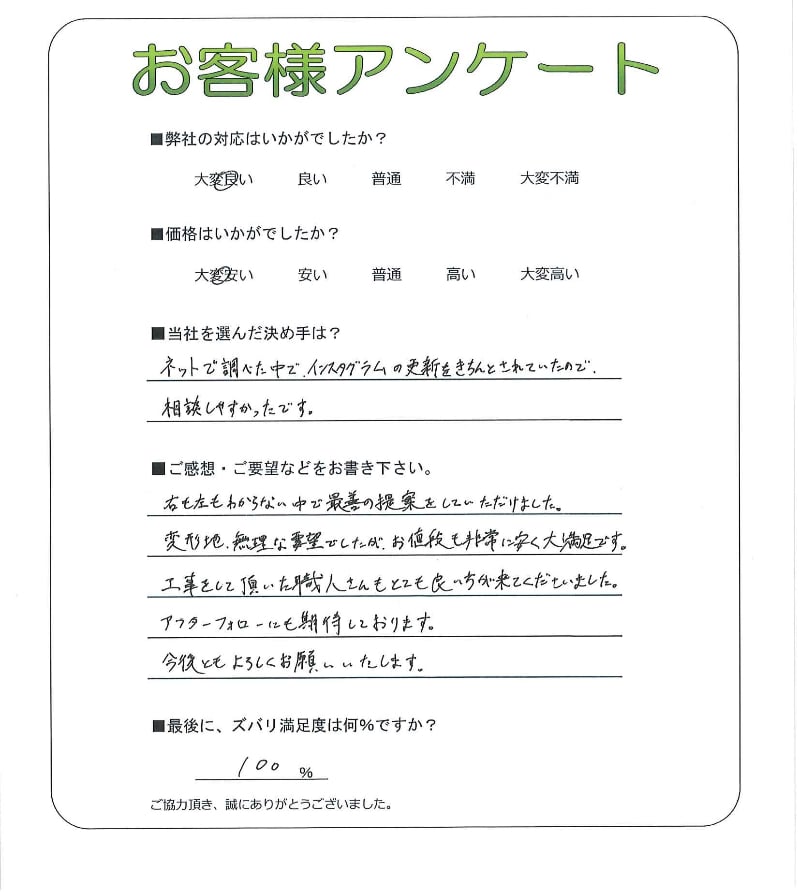 お客様アンケート
■弊社の対応はいかがでしたか？
大変良い 良い 普通 不満 大変不満
■価格はいかがでしたか？
大変安い 安い 普通 高い 大変高い
■当社を選んだ決め手は？
ネットで調べた中で、インスタグラムの更新をきちんとされていたので、
相談しやすかったです。
■ご感想・ご要望などをお書き下さい。
右も左もわからない中で最善の提案をしていただけました。
変形地、無理な要望でしたが、お値段も非常に安く大満足です。
工事をして頂いた職人さんもとても良い方が来てくださいました。
アフターフォローにも期待しております。
今後ともよろしくお願いいたします。
■最後に、ズバリ満足度は何％ですか？
100 ％
ご協力頂き、誠にありがとうございました。